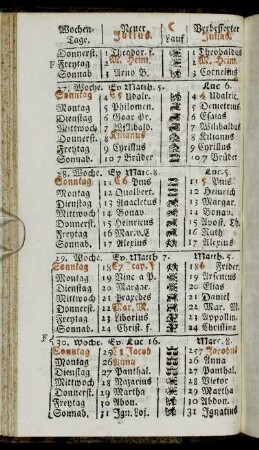 Wochen- Neuer C Verbesserter
Tage. Julius. Lauf Julius.
Donnerst. 1 Theodor. f. 1 Theobaldus
F Freytag 2 M. Heim. 2 M. Heim.
Sonnab. 3 Arno B. 3 Cornelius
27. Woche. Ev Matth. 5. Luc 6.
Sonntag 4 Udalr. 4 Udalric.
Montag 5 Philomen. 5 Demetrius
Dienstag 6 Goar Dr. 6 Esaias
Mittwoch 7 Willibald. 7 Wilibaldus
Donnerst. 8 Kilianus 8 Kilianus
Freytag 9 Cyrillus 9 Cyrillus
Sonnab 10 7 Brüder 10 7 Brüder
28. Woche. Ev Matth. 5. Luc. 5.
Sonntag 11 Pius 11 Pius
Montag 12 Gualbert. 12 Heinrich
Dienstag 13 Anacletus 13 Margar.
Mittwoch 14 Bonav. 14 Bonav.
Donnerst. 15 Henricus 15 Apost. Th.
Freytag 16 Mar. v. C 16 Ruth
Sonnab 17 Alexius 17 Alexius
29. Woche. Ev. Matth 7. Matth. 5.
Sonntag 18 18 Frider.
Montag 19 Vinc a P. 19 Arsenius
Dienstag 20 Margar. 20 Elias
Mittwoch 21 Praxedes 21 Daniel
Donnerst. 22 Mar. M. 22 Mar. M.
Freytag 23 Liborius 23 Appollin.
Sonnab 24 Christ. f. 24 Christina
F 30. Woche. Ev. Luc 16. Marc. 8.
Sonntag 25 Jacob 25 Jacobus
Montag 26 Anna 26 Anna
Dienstag 27 Panthal. 27 Panthal.
Mittwoch 28 Nazarius 28 Victor
Donnerst. 29 Martha 29 Martha
Freytag 30 Abon. 30 Abdon.
Sonnab. 31 Ign. Loj. 31 Ignatius